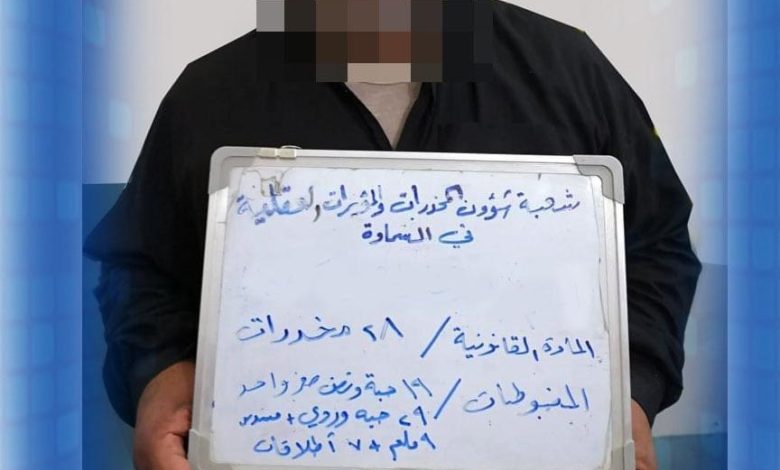 شعبة شؤون المخدرات والمؤثرات العقلية
في السماوة
المادة القانونية / ٢٨ مخدرات
المضبوطات / ١٩ حبة ونصف صفر واحد
٢٩ حبة وردي + مسدس
٩ ملم + ٧ أطلاقات